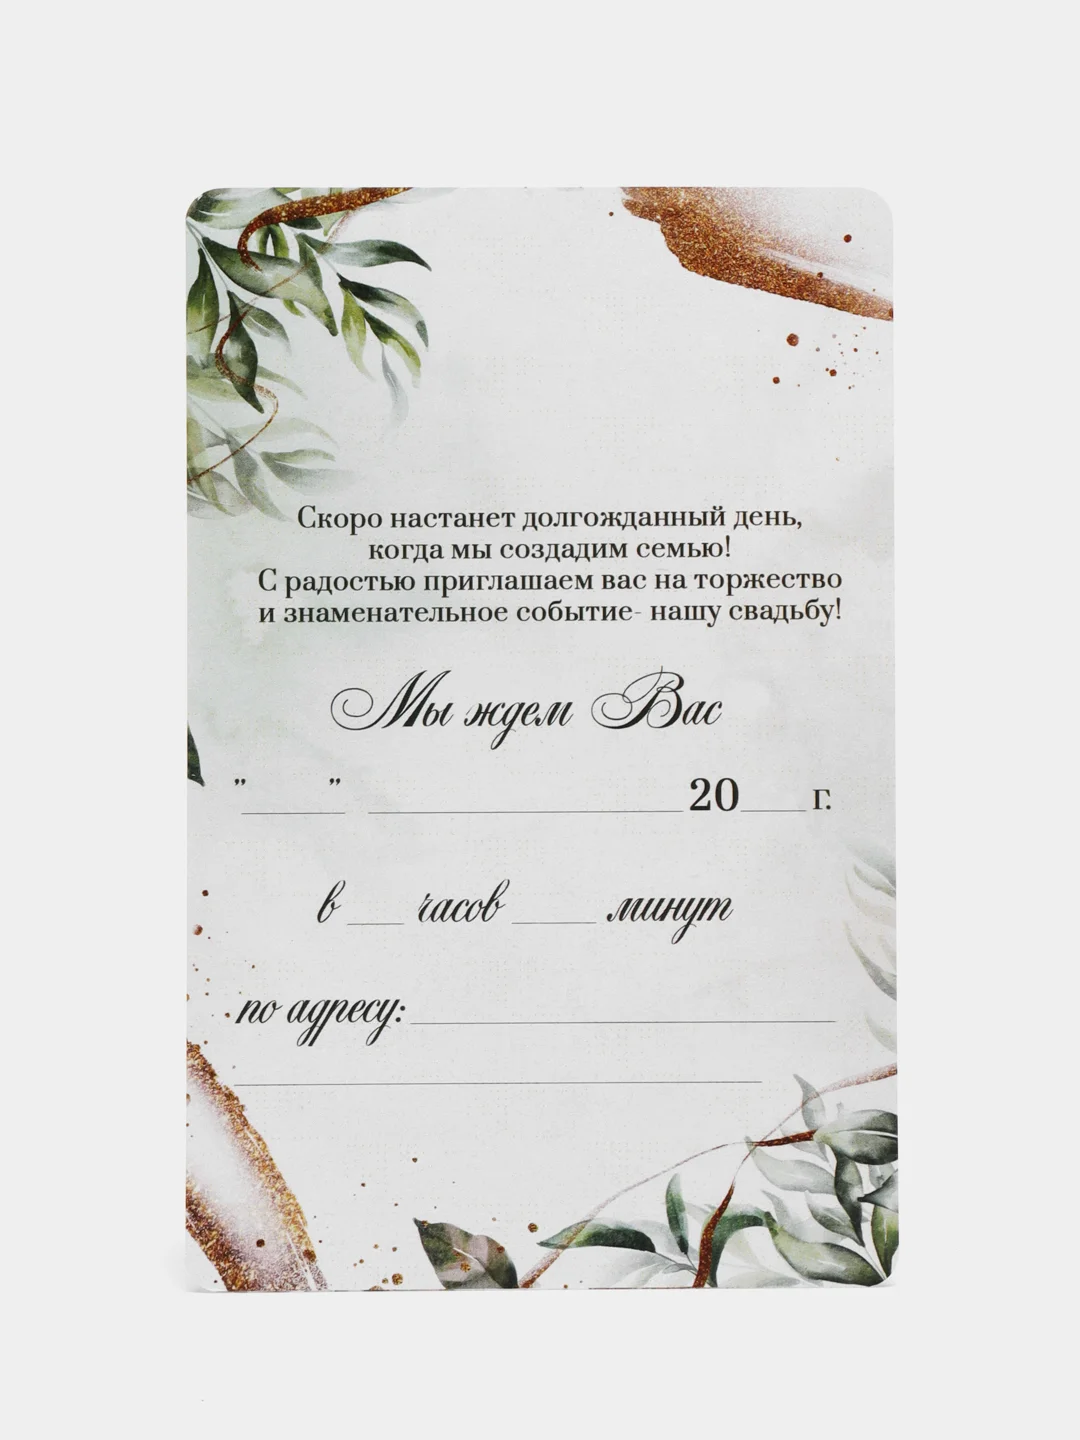 Скоро настанет долгожданный день,
когда мы создадим семью!
С радостью приглашаем вас на торжество
и знаменательное событие- нашу свадьбу!
Мы ждем Вас
"____" ____________ 20___ г.
в ___ часов ____ минут
по адресу: ____________________
____________________